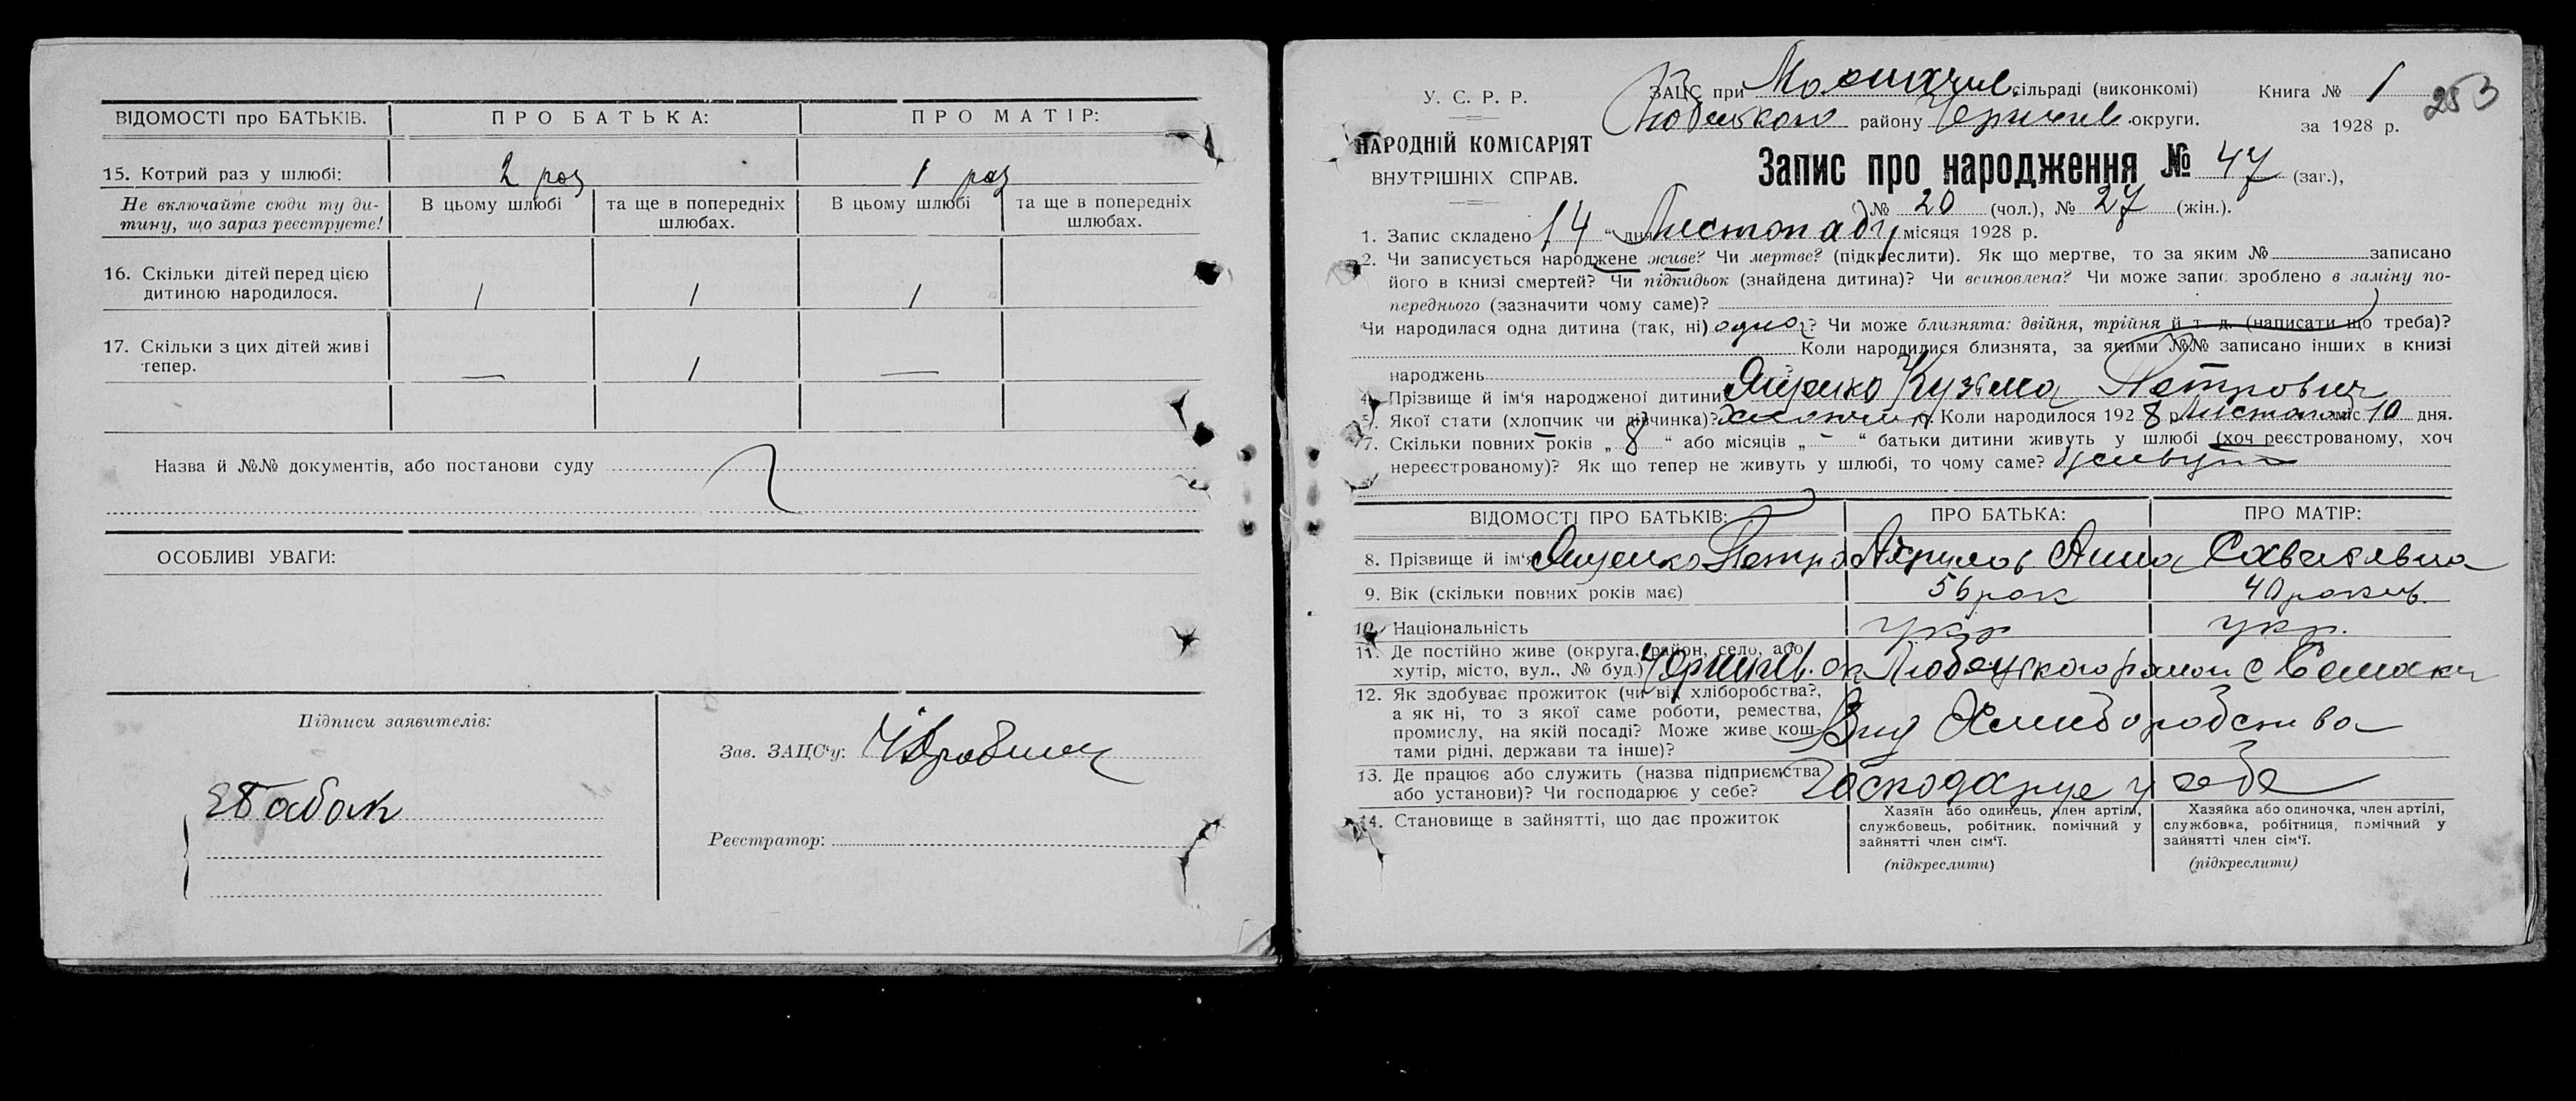 ВІДОМОСТІ про БАТЬКІВ. ПРО БАТЬКА: ПРО МАТІР:
15. Котрий раз у шлюбі: 2 раз 1 раз
Не включайте сюди ту ди-
тину, що зараз реєструєте!
В цьому шлюбі та ще в попередніх шлюбах. В цьому шлюбі та ще в попередніх шлюбах.
16. Скільки дітей перед цією
дитиною народилося. 1 1 1
17. Скільки з цих дітей живі
тепер. — 1 —
Назва й №№ документів, або постанови суду
ОСОБЛИВІ УВАГИ:
Підписи заявителів:
Зав. ЗАЦС‘у:
Бабак
Реєстратор:
У. С. Р. Р.
НАРОДНІЙ КОМІСАРІЯТ
ВНУТРІШНІХ СПРАВ.
ЗАЦС при сільраді (виконкомі) Книга № 1 253
Любецкого району Черниг. округи. за 1928 р.
Запис про народження № 47 (заг.),
№ 20 (чол.), № 27 (жін.).
1. Запис складено 14 “ дня Листопаду місяця 1928 р.
2. Чи записується народжене живе? Чи мертве? (підкреслити). Як що мертве, то за яким № записано
його в книзі смертей? Чи підкидьок (знайдена дитина)? Чи всиновлена? Чи може запис зроблено в заміну по-
переднього (зазначити чому саме)?
Чи народилася одна дитина (так, ні) одна? Чи може близнята: двійня, трійня й т. д. (написати що треба)?
Коли народилися близнята, за якими №№ записано інших в книзі
народжень
4. Прізвище й ім‘я народженої дитини Ященко Кузьма Петрович
5. Якої статі (хлопчик чи дівчинка)? хлопчик Коли народилося 192 8 р. Листопаду міс. 10 дня.
7. Скільки повних років „ 8 “ або місяців „ - “ батьки дитини живуть у шлюбі (хоч реєстрованому, хоч
нереєстрованому)? Як що тепер не живуть у шлюбі, то чому саме? живуть
ВІДОМОСТІ ПРО БАТЬКІВ: ПРО БАТЬКА: ПРО МАТІР:
8. Прізвище й ім‘я Ященко Петро Анна
9. Вік (скільки повних років має) 56 рок 40 роков.
10. Національність укр укр.
11. Де постійно живе (округа, район, село, або
хутір, місто, вул., № буд.) Черниг. ок Любецкого район с Семаки
12. Як здобуває прожиток (чи від хліборобства?,
а як ні, то з якої саме роботи, ремества,
промислу, на якій посаді? Може живе кош-
тами рідні, держави та інше)? Вид Хлиборобства
13. Де працює або служить (назва підприємства
або установи)? Чи господарює у себе? Господарує у себе
14. Становище в зайнятті, що дає прожиток
Хазяїн або одинець, член артілі,
службовець, робітник, помічний у
зайнятті член сім‘ї.
(підкреслити)
Хазяйка або одиночка, член артілі,
службовка, робітниця, помічний у
зайнятті член сім‘ї.
(підкреслити)